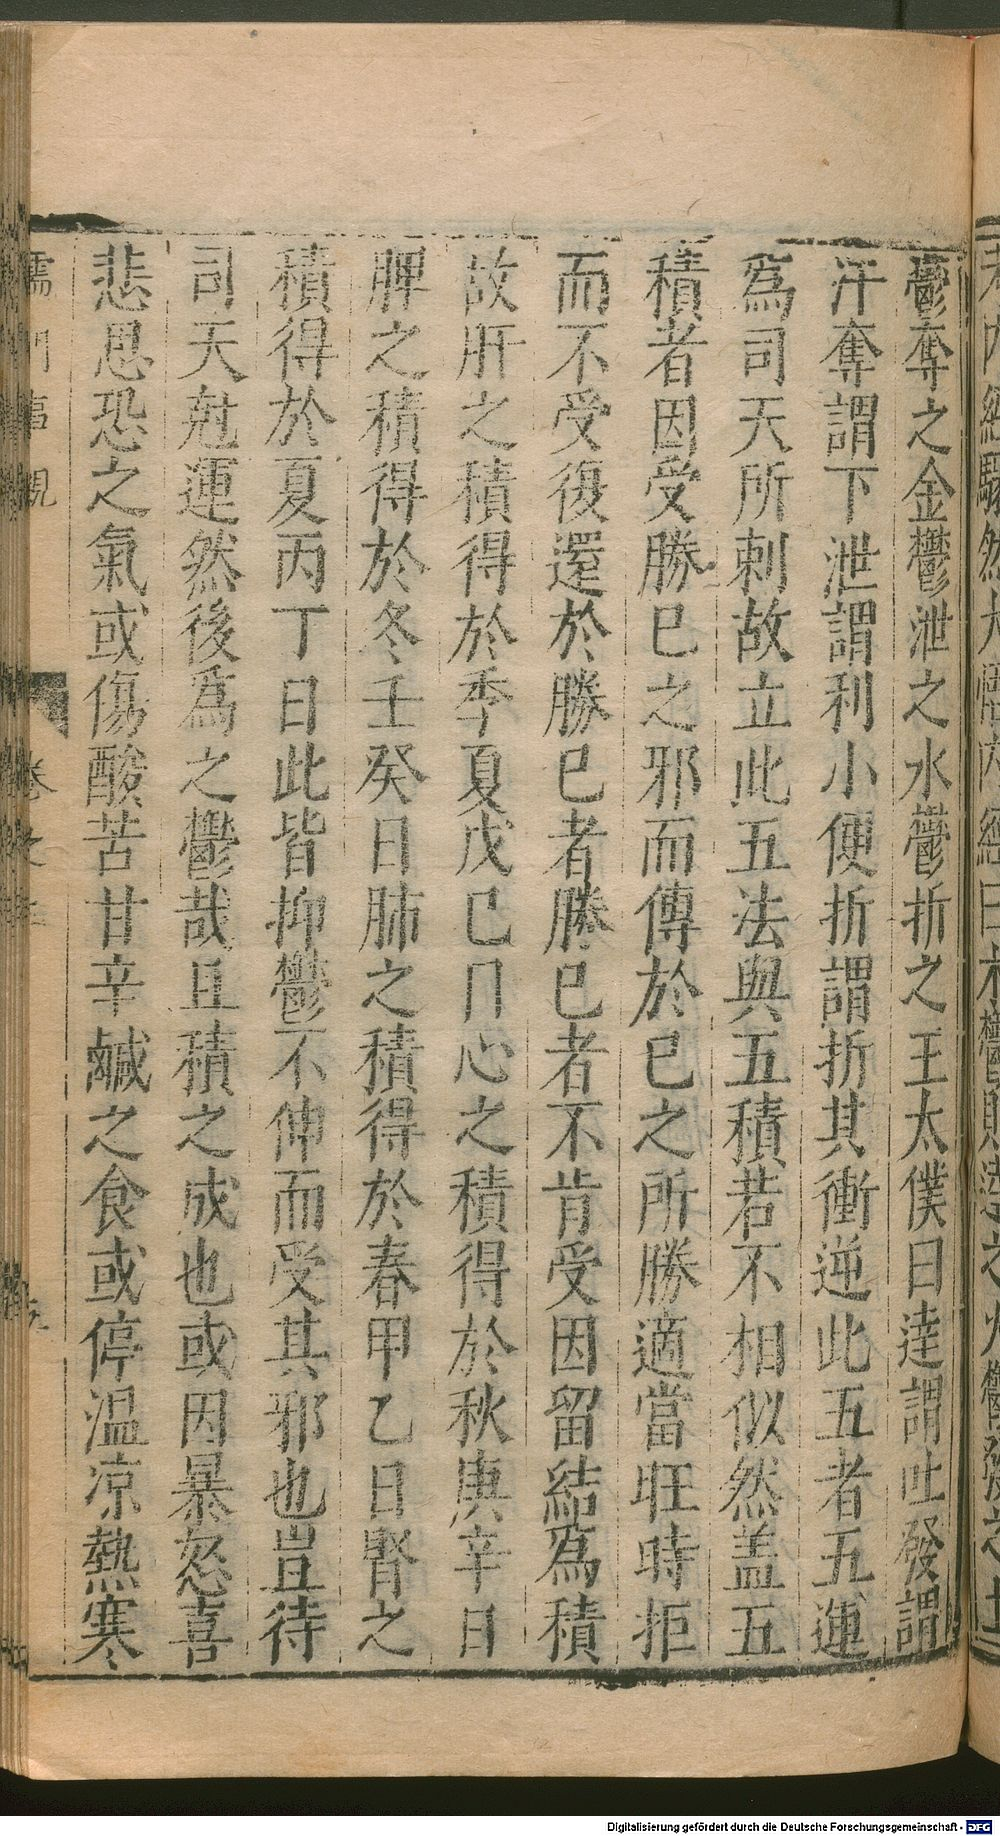 鬱奪之金鬱泄之水鬱折之王太僕曰達謂吐發謂
汗奪謂下泄謂利小便折謂折其衝逆此五者五運
爲司天所制故立此五法與五積若不相似然盖五
積者因受勝己之邪而傳於己之所勝適當旺時拒
而不受復還於勝己者勝己者不肯受因留結爲積
故肝之積得於季夏戊己日心之積得於秋庚辛日
脾之積得於冬壬癸日肺之積得於春甲乙日腎之
積得於夏丙丁日此皆抑鬱不伸而受其邪也豈待
司天尅運然後爲之鬱哉且積之成也或因暴怒喜
悲思恐之氣或傷酸苦甘辛鹹之食或停温凉熱寒
儒門事親
卷之三
Digitalisierung gefördert durch die Deutsche Forschungsgemeinschaft - DFG